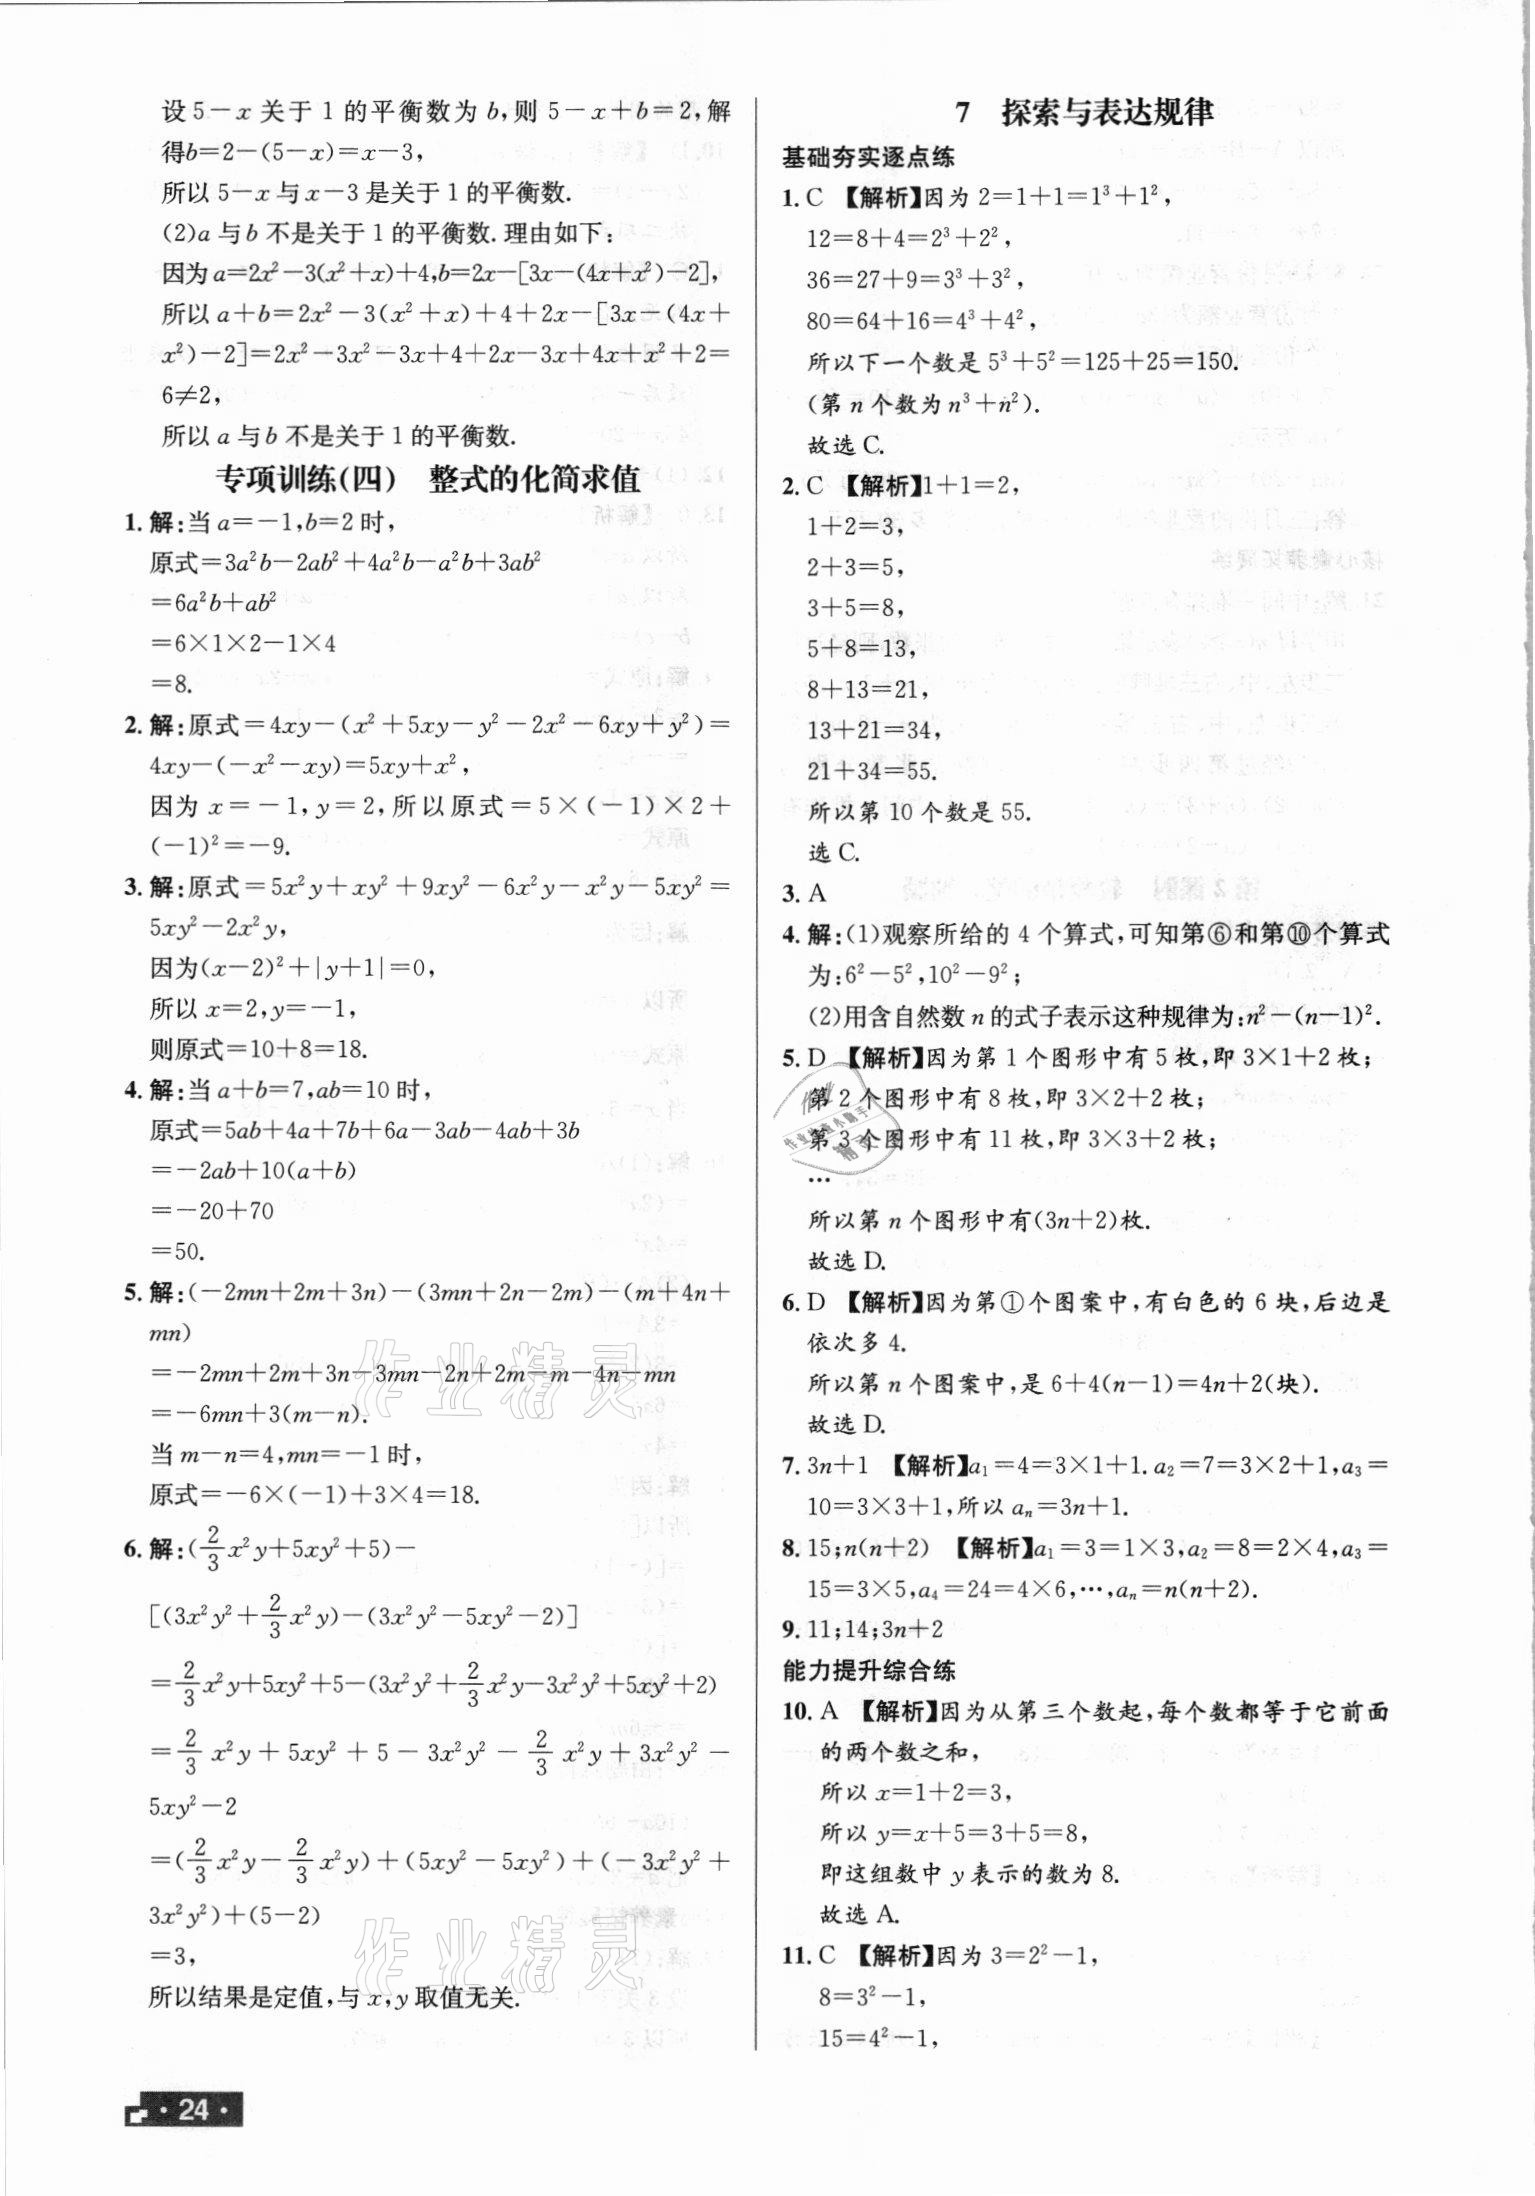 设5－x关于1的平衡数为b,则5－x＋b＝2,解
得b＝2－(5－x)＝x－3,
所以5－x与x－3是关于1的平衡数.
(2)a与b不是关于1的平衡数.理由如下:
因为a＝2x²－3(x²＋x)＋4,b＝2x－[3x－(4x＋x²)－2],
所以a＋b＝2x²－3(x²＋x)＋4＋2x－[3x－(4x＋
x²)－2]＝2x²－3x²－3x＋4＋2x－3x＋4x＋x²＋2＝
6≠2,
所以a与b不是关于1的平衡数.
专项训练(四) 整式的化简求值
1.解:当a＝－1,b＝2时,
原式＝3a²b－2ab²＋4a²b－a²b＋3ab²
＝6a²b＋ab²
＝6×1×2－1×4
＝8.
2.解:原式＝4xy－(x²＋5xy－y²－2x²－6xy＋y²)＝
4xy－(－x²－xy)＝5xy＋x²,
因为x＝－1,y＝2,所以原式＝5×(－1)×2＋
(－1)²＝－9.
3.解:原式＝5x²y＋xy²＋9xy²－6x²y－x²y－5xy²＝
5xy²－2x²y,
因为(x－2)²＋|y＋1|＝0,
所以x＝2,y＝－1,
则原式＝10＋8＝18.
4.解:当a＋b＝7,ab＝10时,
原式＝5ab＋4a＋7b＋6a－3ab－4ab＋3b
＝－2ab＋10(a＋b)
＝－20＋70
＝50.
5.解:(－2mn＋2m＋3n)－(3mn＋2n－2m)－(m＋4n＋
mn)
＝－2mn＋2m＋3n－3mn－2n＋2m－m－4n－mn
＝－6mn＋3(m－n).
当m－n＝4,mn＝－1时,
原式＝－6×(－1)＋3×4＝18.
6.解:(2/3x²y＋5xy²＋5)－
[(3x²y²＋2/3x²y)－(3x²y²－5xy²－2)]
＝2/3x²y＋5xy²＋5－(3x²y²＋2/3x²y－3x²y²＋5xy²＋2)
＝2/3x²y＋5xy²＋5－3x²y²－2/3x²y＋3x²y²－
5xy²－2
＝(2/3x²y－2/3x²y)＋(5xy²－5xy²)＋(－3x²y²＋
3x²y²)＋(5－2)
＝3,
所以结果是定值,与x,y取值无关.
7 探索与表达规律
基础夯实逐点练
1.C 【解析】因为2＝1＋1＝1³＋1²,
12＝8＋4＝2³＋2²,
36＝27＋9＝3³＋3²,
80＝64＋16＝4³＋4²,
所以下一个数是5³＋5²＝125＋25＝150.
(第n个数为n³＋n²).
故选C.
2.C 【解析】1＋1＝2,
1＋2＝3,
2＋3＝5,
3＋5＝8,
5＋8＝13,
8＋13＝21,
13＋21＝34,
21＋34＝55.
所以第10个数是55.
选C.
3.A
4.解:(1)观察所给的4个算式,可知第⑥和第⑩个算式
为:6²－5²,10²－9²;
(2)用含自然数n的式子表示这种规律为:n²－(n－1)².
5.D 【解析】因为第1个图形中有5枚,即3×1＋2枚;
第2个图形中有8枚,即3×2＋2枚;
第3个图形中有11枚,即3×3＋2枚;
…
所以第n个图形中有(3n＋2)枚.
故选D.
6.D 【解析】因为第①个图案中,有白色的6块,后边是
依次多4.
所以第n个图案中,是6＋4(n－1)＝4n＋2(块).
故选D.
7.3n＋1 【解析】a₁＝4＝3×1＋1.a₂＝7＝3×2＋1,a₃＝
10＝3×3＋1,所以aₙ＝3n＋1.
8.15;n(n＋2) 【解析】a₁＝3＝1×3,a₂＝8＝2×4,a₃＝
15＝3×5,a₄＝24＝4×6,…,aₙ＝n(n＋2).
9.11;14;3n＋2
能力提升综合练
10.A 【解析】因为从第三个数起,每个数都等于它前面
的两个数之和,
所以x＝1＋2＝3,
所以y＝x＋5＝3＋5＝8,
即这组数中y表示的数为8.
故选A.
11.C 【解析】因为3＝2²－1,
8＝3²－1,
15＝4²－1,
作业精灵
作业精灵
·24·